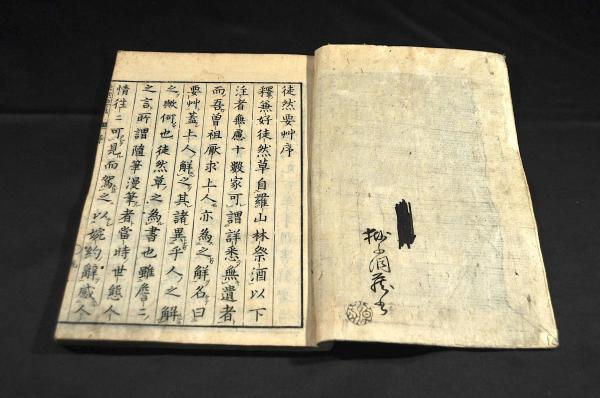 徒然要艸序
釋兼好徒然草自羅山林祭酒以下
注者無慮十數家可謂詳悉無遺者
而吾曾祖厭求上人亦為之解名曰
要艸蓋上人解之其諸異乎人之解
之歟何也徒然草之為書也雖詹〻
之言所謂隨筆漫筆者當時世態人
情往〻可見而駕之以婉約辭感人